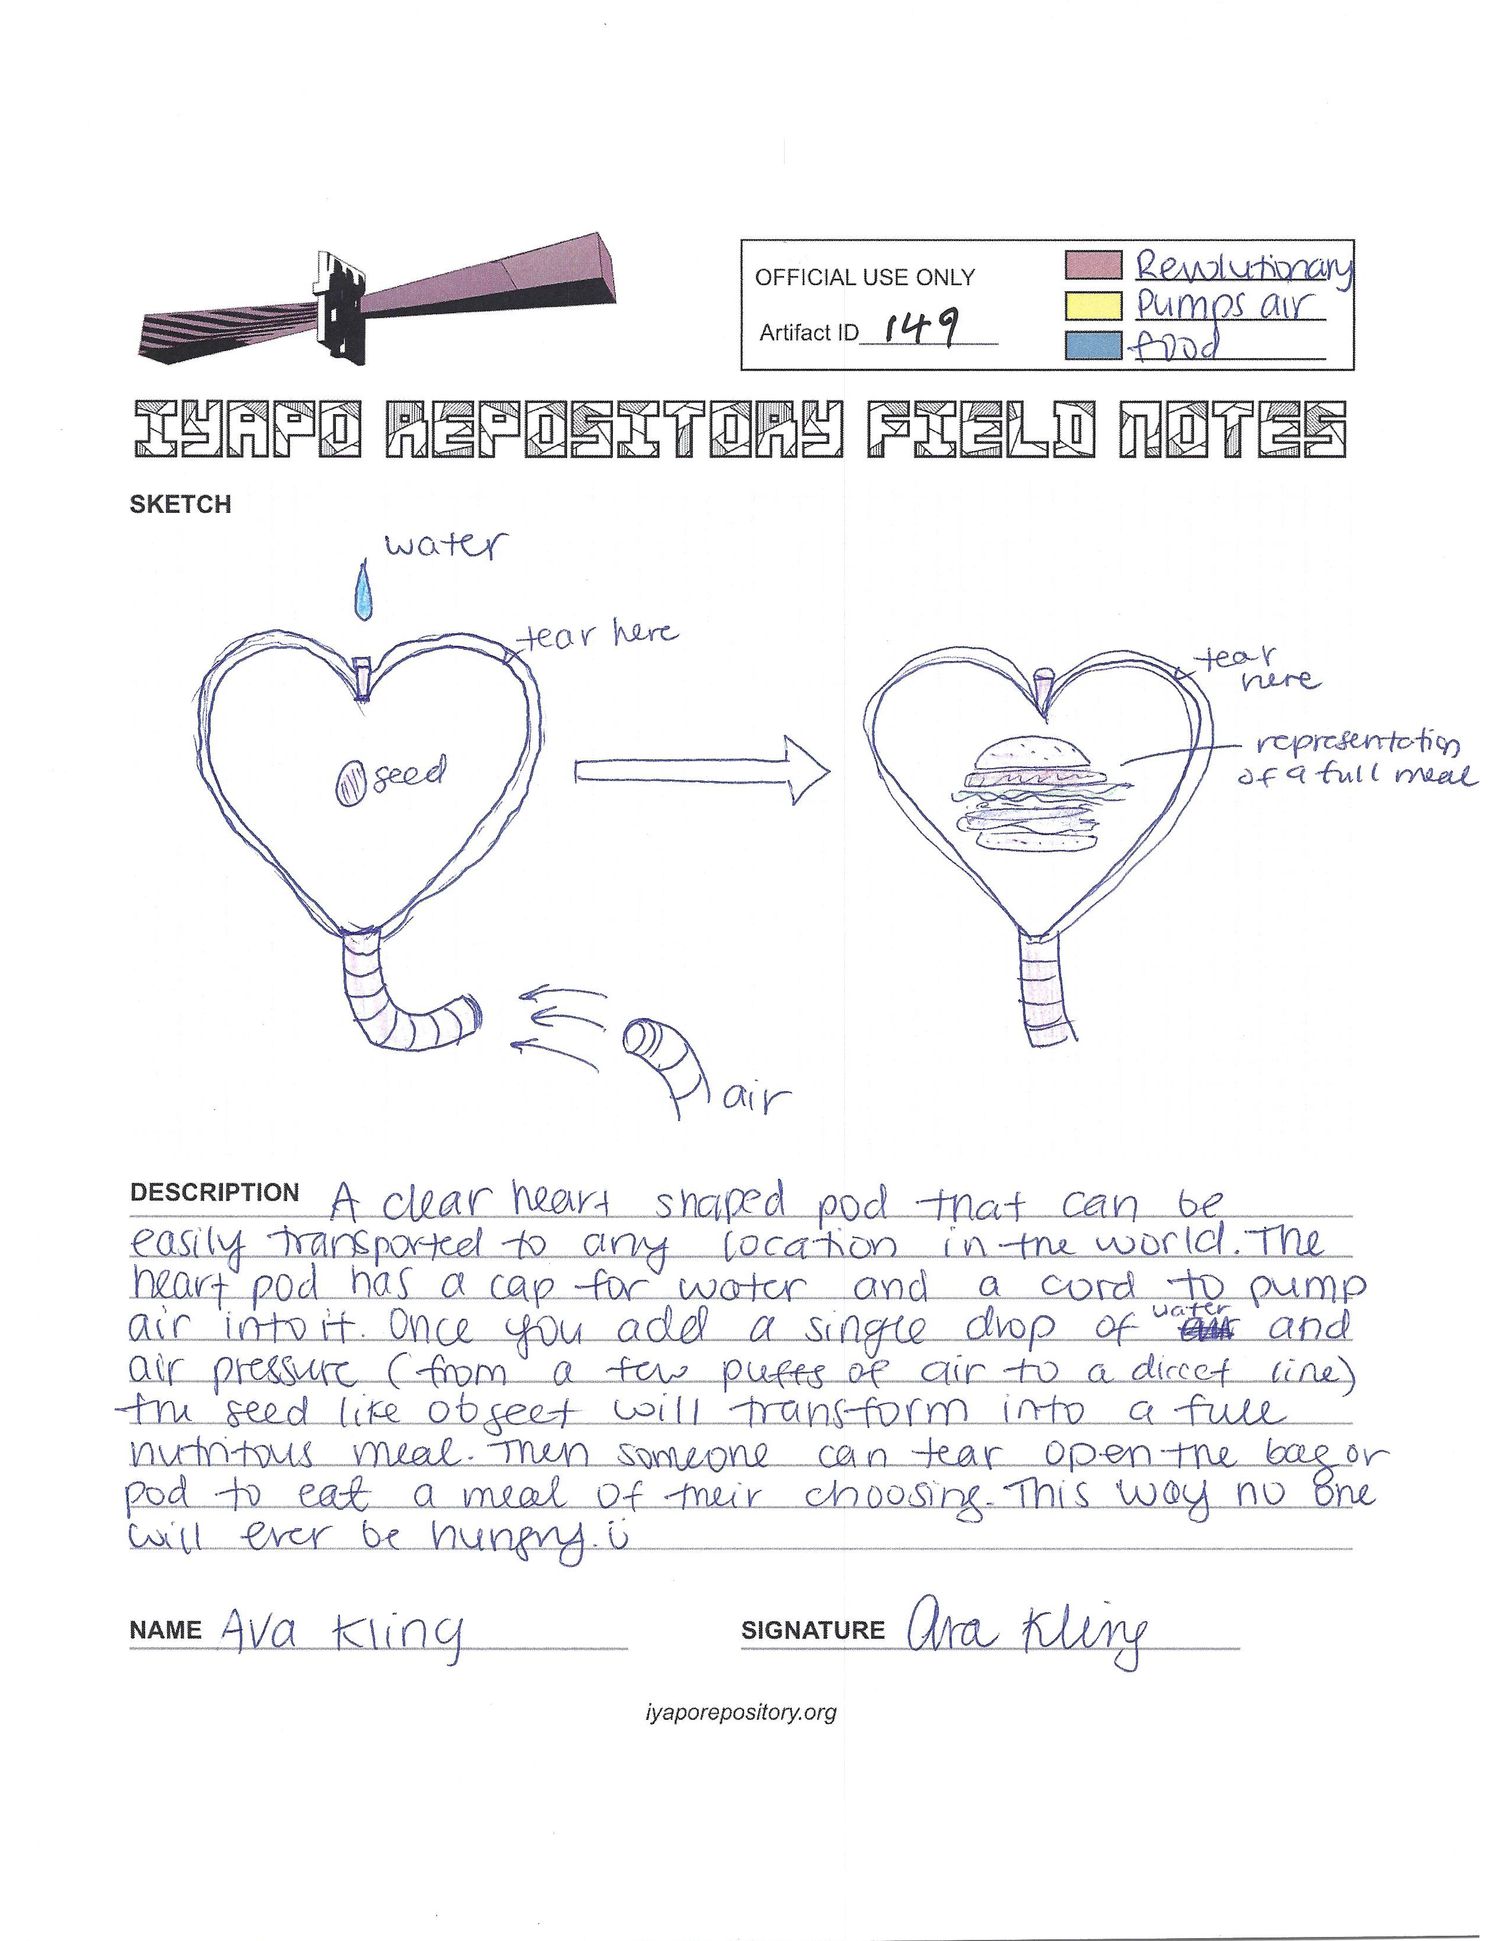 OFFICIAL USE ONLY
Artifact ID 149
Revolutionary
Pumps air
food
IYAPO REPOSITORY FIELD NOTES
SKETCH
water
tear here
seed
air
tear
here
representation
of a full meal
DESCRIPTION A clear heart shaped pod that can be
easily transported to any location in the world. The
heart pod has a cap for water and a cord to pump
air into it. Once you add a single drop of water and
air pressure (from a few puffs of air to a direct line)
the seed like object will transform into a full
nutritous meal. Then someone can tear open the bag or
pod to eat a meal of their choosing. This way no one
will ever be hungry. ü
NAME Ava Kling
SIGNATURE Ava Kling
iyaporepository.org